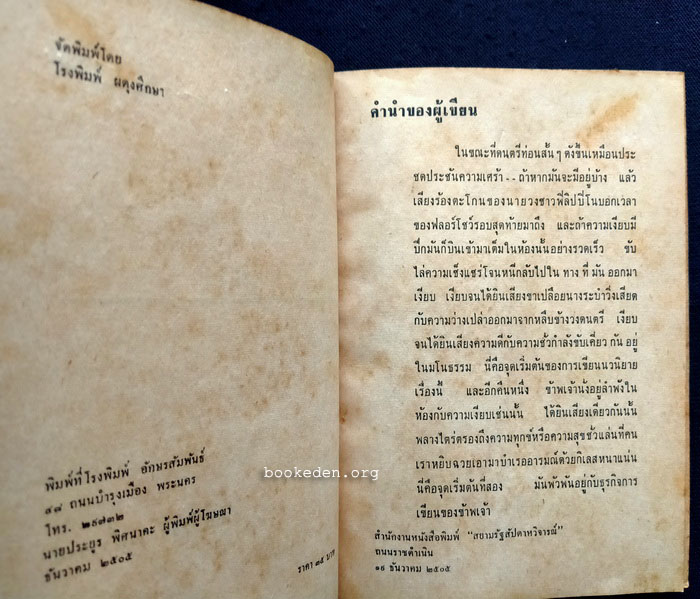 จัดพิมพ์โดย
โรงพิมพ์ ผดุงศึกษา
พิมพ์ที่โรงพิมพ์ อักษรสัมพันธ์
๘๘ ถนนบำรุงเมือง พระนคร
โทร. ๒๔๗๓๒
นายประยูร พิศนาคะ ผู้พิมพ์ผู้โฆษณา
ธันวาคม ๒๕๐๕
ราคา ๓๕ บาท
คำนำของผู้เขียน
ในขณะที่ดนตรีท่อนสั้น ๆ ดังขึ้นเหมือนประ
ชดประชันความเศร้า--ถ้าหากมันจะมีอยู่บ้าง แล้ว
เสียงร้องตะโกนของนายวงชาวฟิลิปปิโนบอกเวลา
ของฟลอร์โชว์รอบสุดท้ายมาถึง และถ้าความเงียบมี
ปีกมันก็บินเข้ามาเต็มในห้องนั้นอย่างรวดเร็ว ขับ
ไล่ความเซ็งแซ่โจนหนีกลับไปใน ทาง ที่ มัน ออกมา
เงียบ เงียบจนได้ยินเสียงขาเปลือยนางระบำวิ่งเสียด
กับความว่างเปล่าออกมาจากหลืบข้างวงดนตรี เงียบ
จนได้ยินเสียงความดีกับความชั่วกำลังขับเคี่ยว กัน อยู่
ในมโนธรรม นี่คือจุดเริ่มต้นของการเขียนนวนิยาย
เรื่องนี้ และอีกคืนหนึ่ง ข้าพเจ้านั่งอยู่ลำพังใน
ห้องกับความเงียบเช่นนั้น ได้ยินเสียงเดียวกันนั้น
พลางไตร่ตรองถึงความทุกข์หรือความสุขชั่วแล่นที่คน
เราหยิบฉวยเอามาบำเรออารมณ์ด้วยกิเลสหนาแน่น
นี่คือจุดเริ่มต้นที่สอง มันพัวพันอยู่กับธุรกิจการ
เขียนของข้าพเจ้า
สำนักงานหนังสือพิมพ์ "สยามรัฐสัปดาหวิจารณ์"
ถนนราชดำเนิน
๑๙ ธันวาคม ๒๕๐๕
bookeden.org